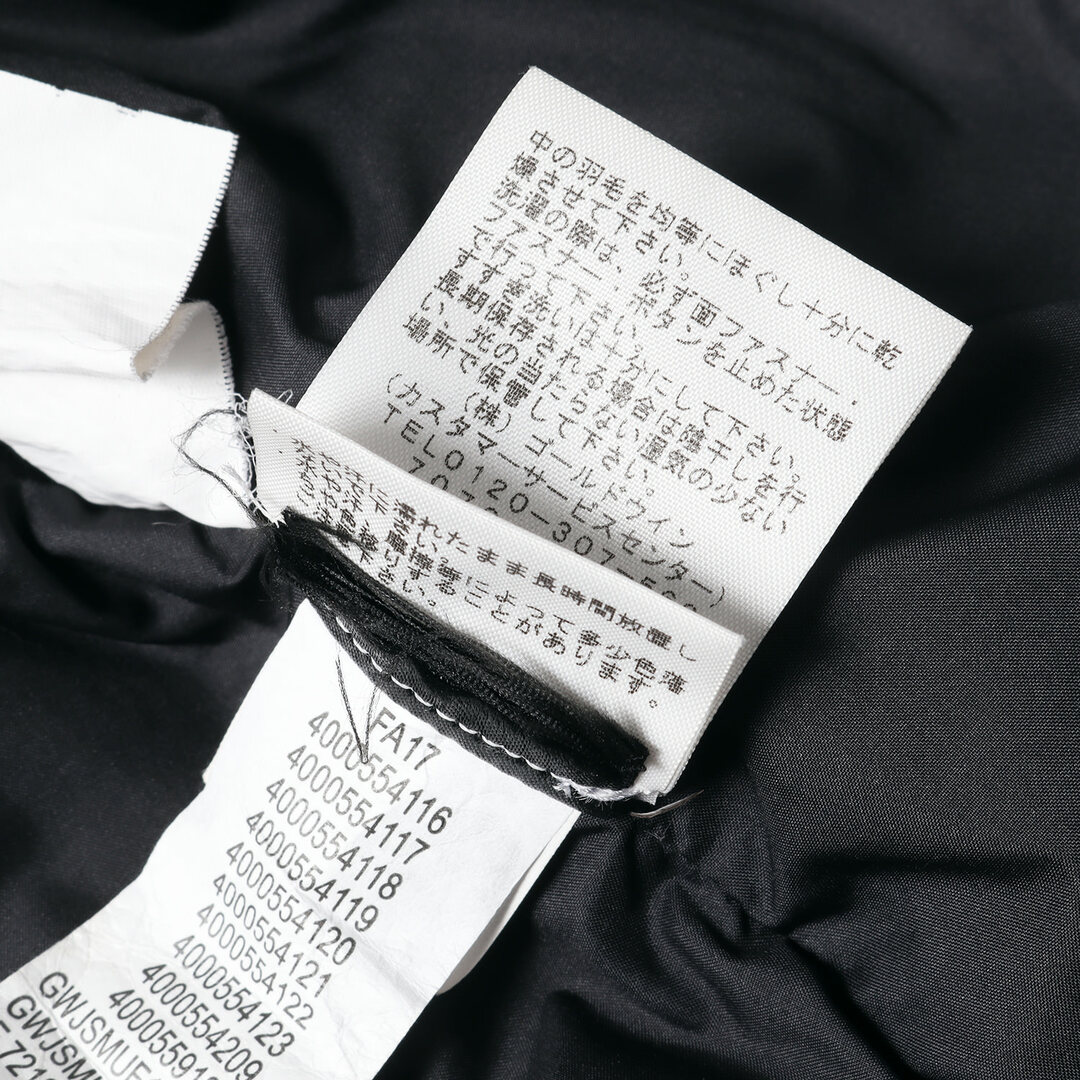 中の羽毛を均等にほぐし十分に乾
燥させて下さい。
洗濯の際は、必ず面ファスナー・
ファスナー、ボタンを止めた状態
で行って下さい。
すすぎ洗いは十分にして下さい。
長期保存される場合は陰干しを行
い、光の当たらない湿気の少ない
場所で保管して下さい。
(株)ゴールドウイン
(カスタマーサービスセンター)
TEL0120-307-5
濡れたまま長時間放置し
下さい。
摩擦等によって多少色落
色移りすることがあります。
下さい。
FA17
4000554116
4000554117
4000554118
4000554119
4000554120
4000554121
4000554122
4000554123
4000554209
40005591
GWJSMUF
GWJSM
721